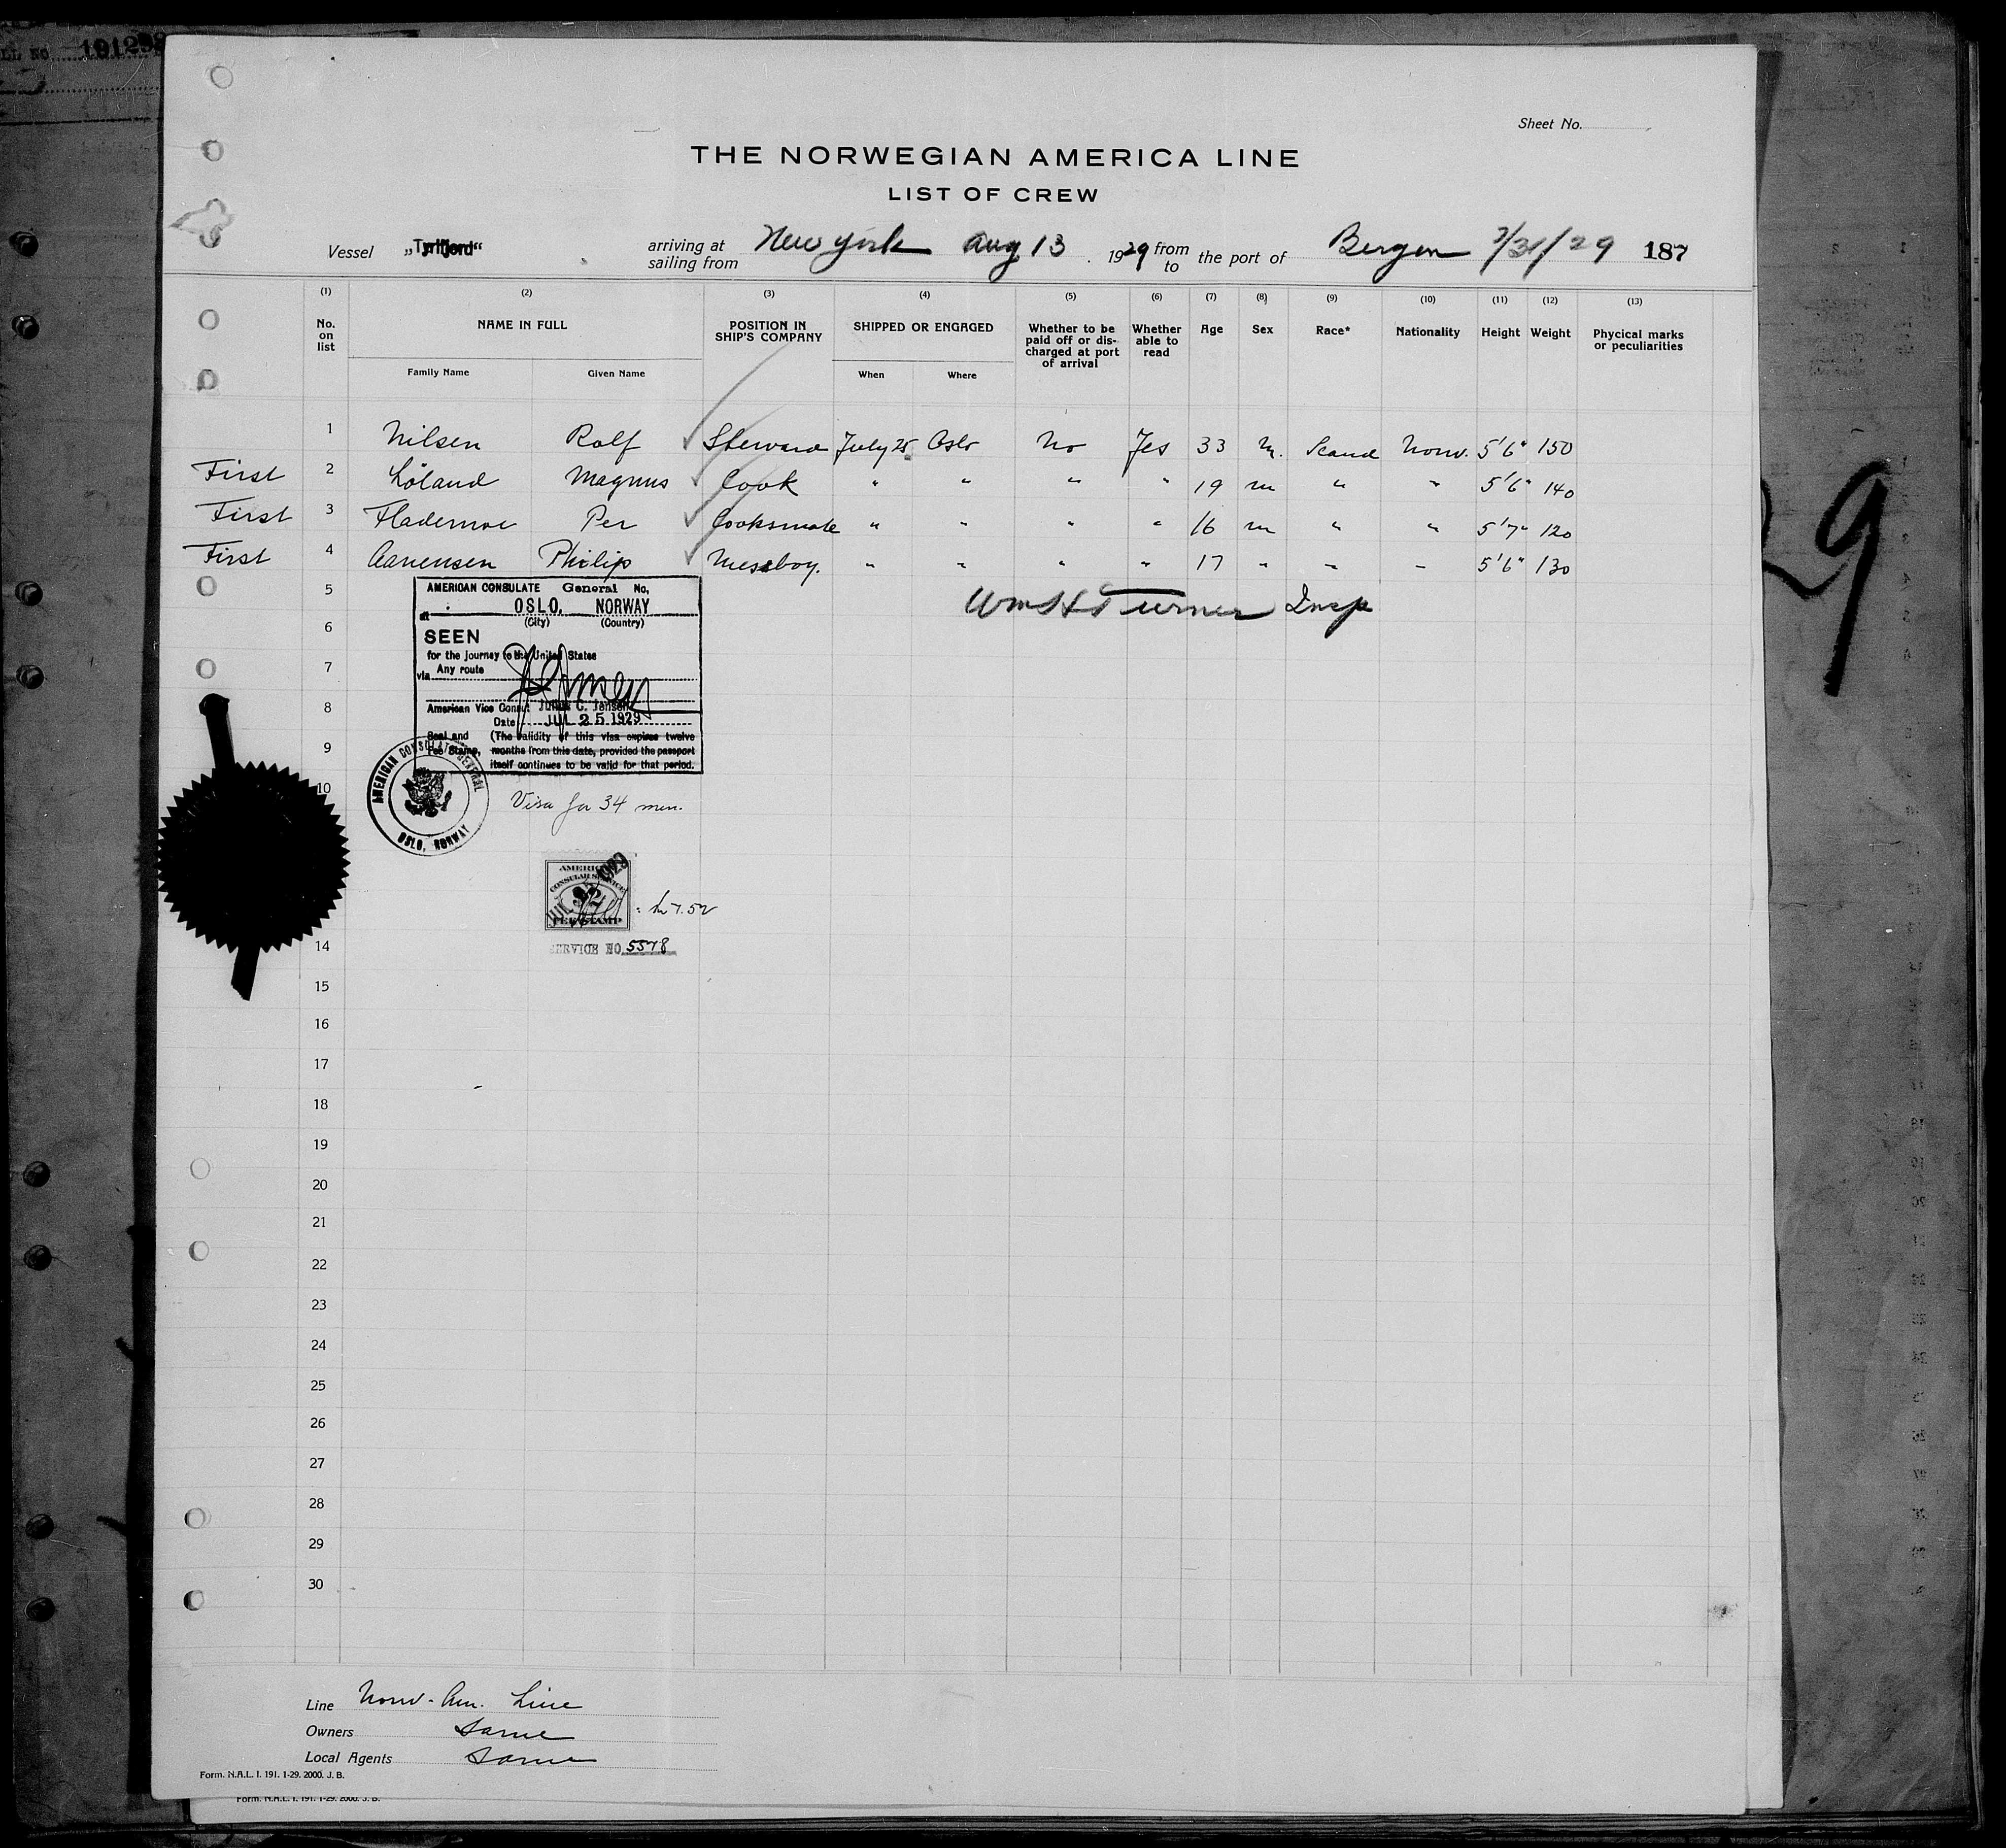 LL NO 191298
Sheet No.
THE NORWEGIAN AMERICA LINE
LIST OF CREW
Vessel „Tyrifjord“ arriving at sailing from New York Aug 13 1929 from to the port of Bergen 7/31/29 187
(1) (2) (3) (4) (5) (6) (7) (8) (9) (10) (11) (12) (13)
No. on list NAME IN FULL POSITION IN SHIP'S COMPANY SHIPPED OR ENGAGED Whether to be paid off or discharged at port of arrival Whether able to read Age Sex Race* Nationality Height Weight Phycical marks or peculiarities
Family Name Given Name When Where
1 Nilsen Rolf Steward July 25 Oslo No Yes 33 M. Scand Norw. 5'6" 150
First 2 Löland Magnus Cook " " " " 19 m " " 5'6" 140
First 3 Per Cooksmate " " " " 16 m " " 5'7" 120
First 4 Aanensen Philip Messboy. " " " " 17 " " " 5'6" 130
5
Wm H Turner Insp
AMERICAN CONSULATE General No,
at OSLO, NORWAY
(City) (Country)
6
SEEN
for the journey to the United States
7
via Any route
8
American Vice Consul C. Jensen
Date JUL 25 1929
9
Seal and Fee Stamp, (The validity of this visa expires twelve
months from this date, provided the passport
itself continues to be valid for that period.
AMERICAN CONSULATE GENERAL
OSLO, NORWAY
10
Visa for 34 men.
AMERICAN
CONSULAR SERVICE
$2
FEE STAMP
JUL 25 1929
= kr 7.52
SERVICE NO. 5578
14
15
16
17
18
19
20
21
22
23
24
25
26
27
28
29
30
Line Norw-Am. Line
Owners Same
Local Agents Same
Form. N.A.L. I. 191. 1-29. 2000. J. B.
Form. N.A.L. I. 191. 1-29. 2000. J. B.
9